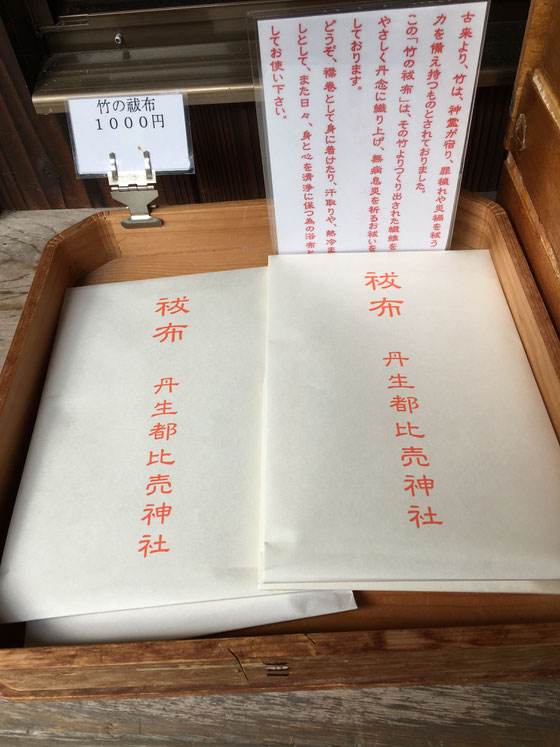 竹の祓布
1000円
古来より、竹は、神霊が宿り、罪穢れや災禍を祓う
力を備え持つものとされておりました。
この「竹の祓布」は、その竹よりつくり出された繊維を
やさしく丹念に織り上げ、無病息災を祈るお祓いを
しております。
どうぞ、襟巻として身に着けたり、汗取りや、熱冷ま
しとして、また日々、身と心を清浄に保つ為の浴布と
してお使い下さい。
祓布
丹生都比売神社
祓布
丹生都比売神社